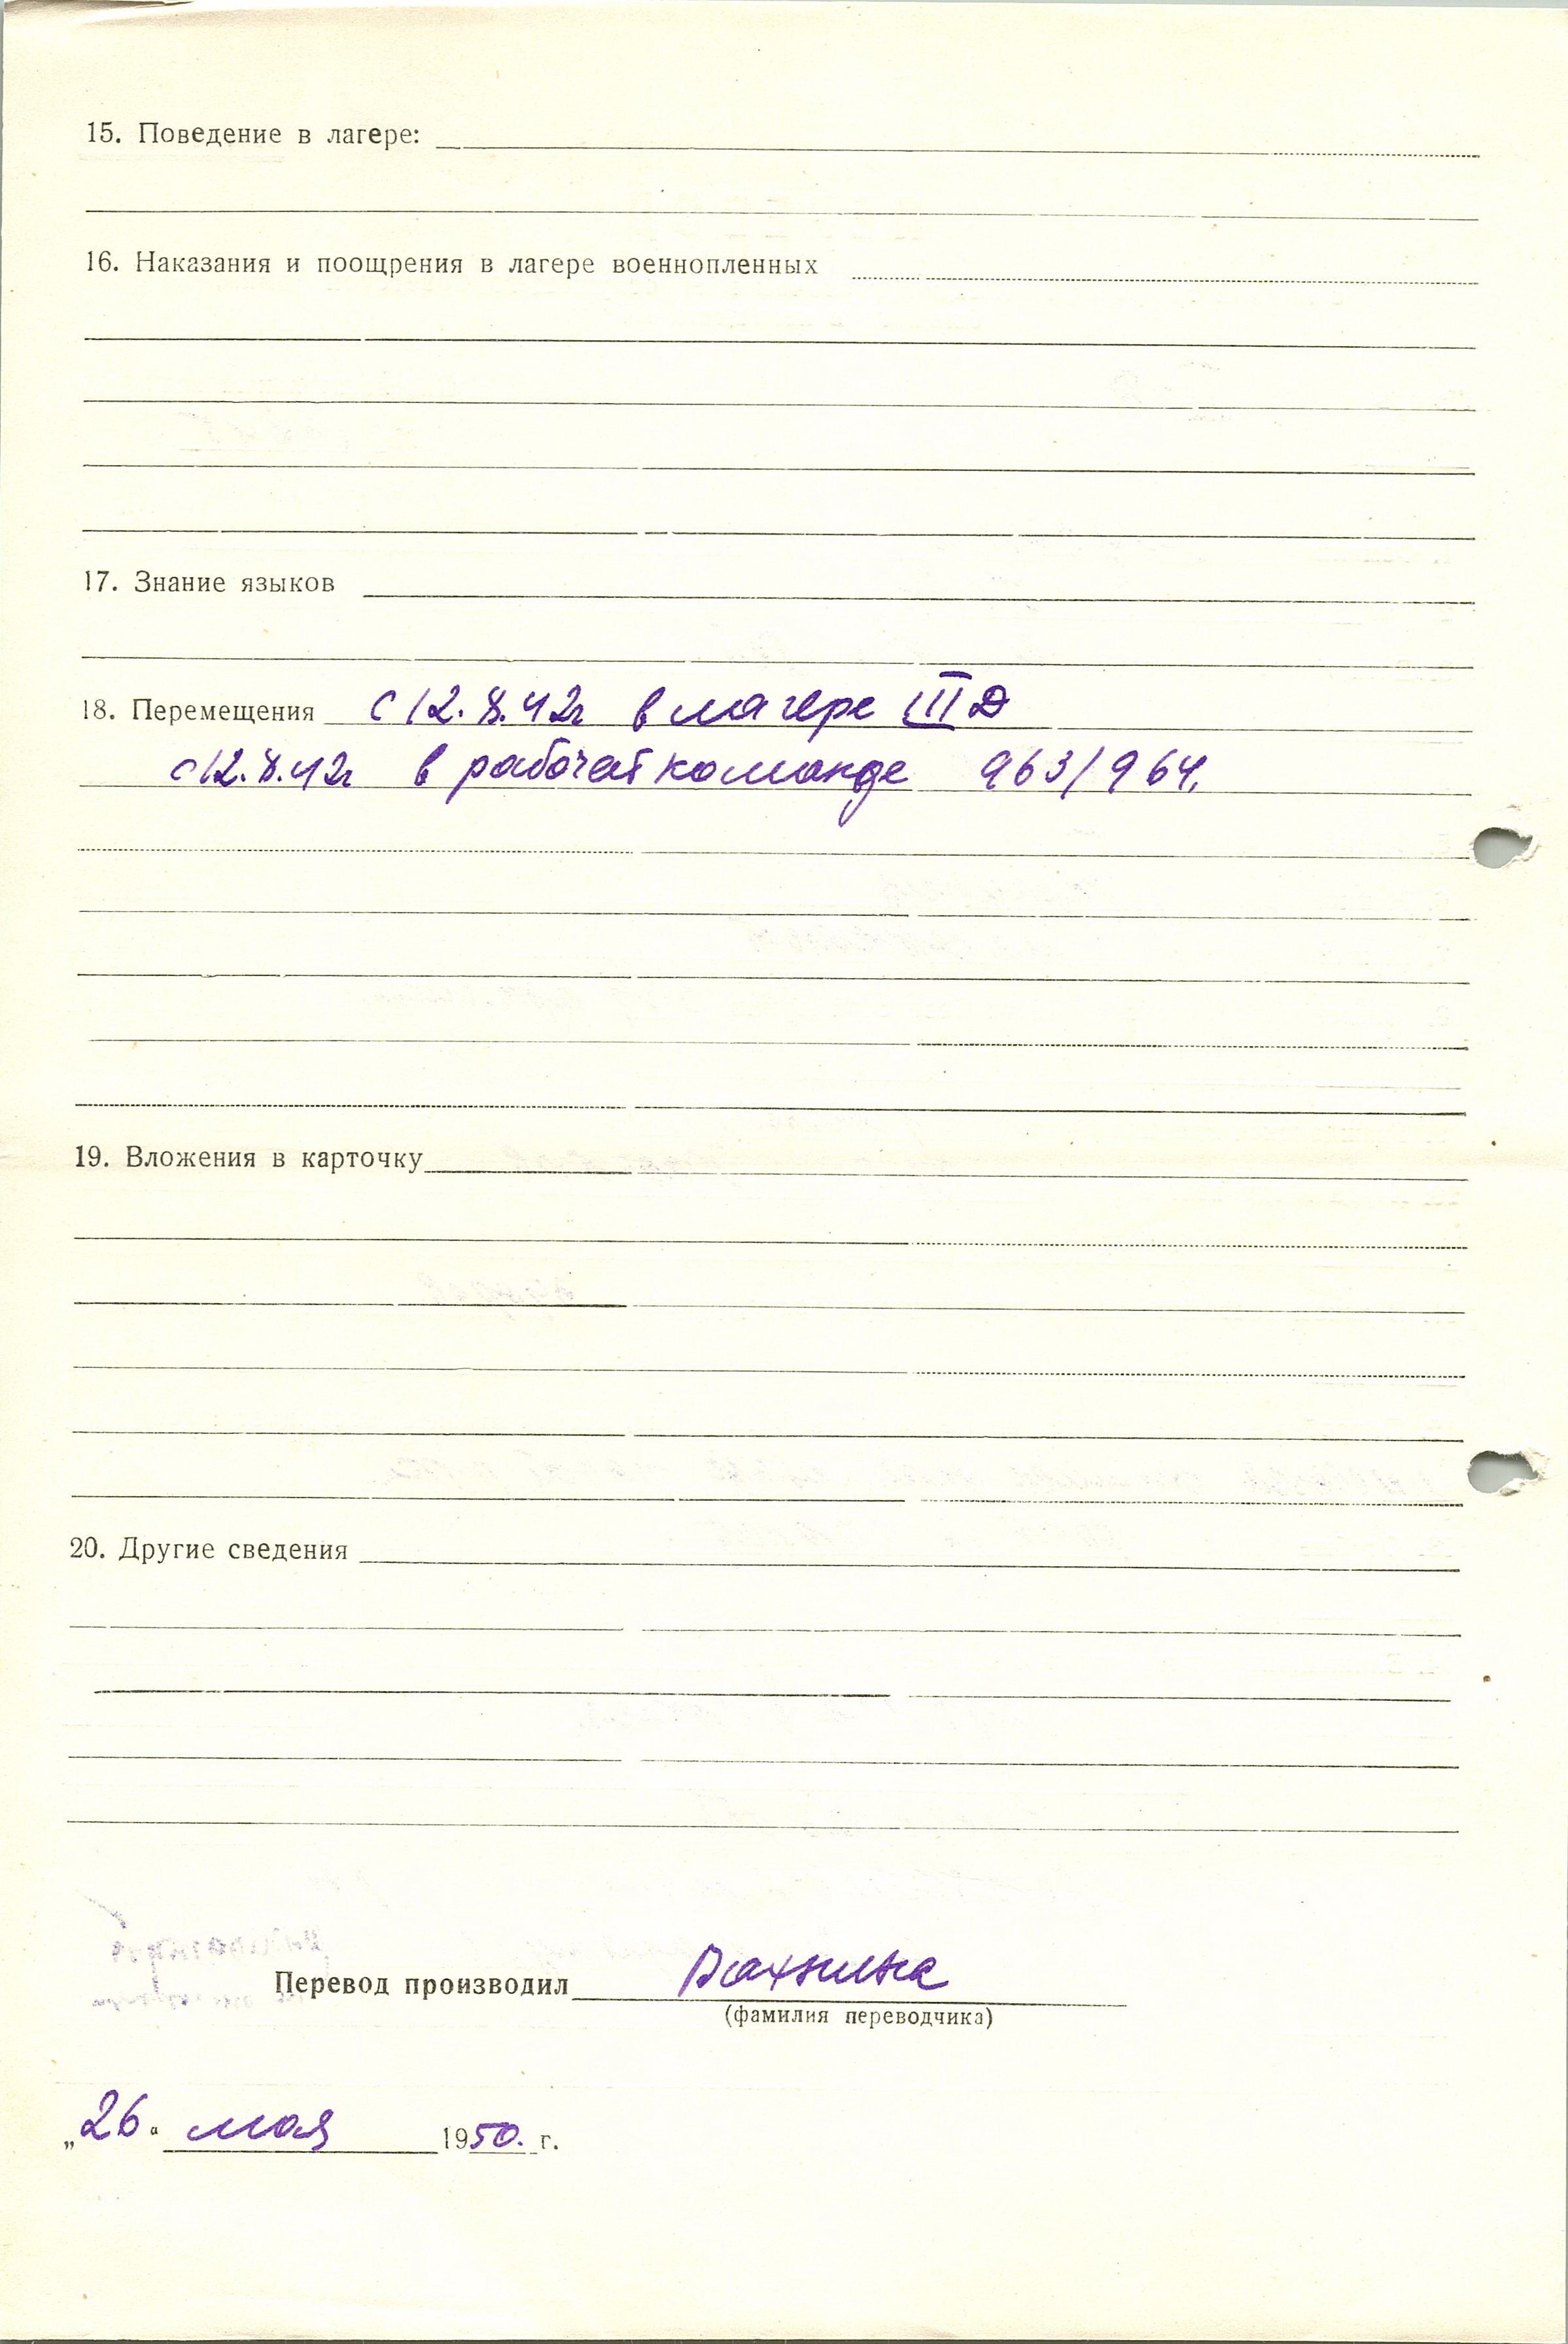 15. Поведение в лагере:
16. Наказания и поощрения в лагере военнопленных
17. Знание языков
18. Перемещения с 12.8.42г в лагере III Д
с 12.8.42г в рабочей команде 963/964.
19. Вложения в карточку
20. Другие сведения
Перевод производил
(фамилия переводчика)
„26“ мая 1950. г.